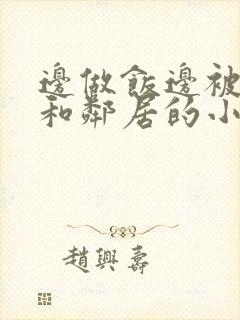 邊做飯邊被
和鄰居的小
趙興壽